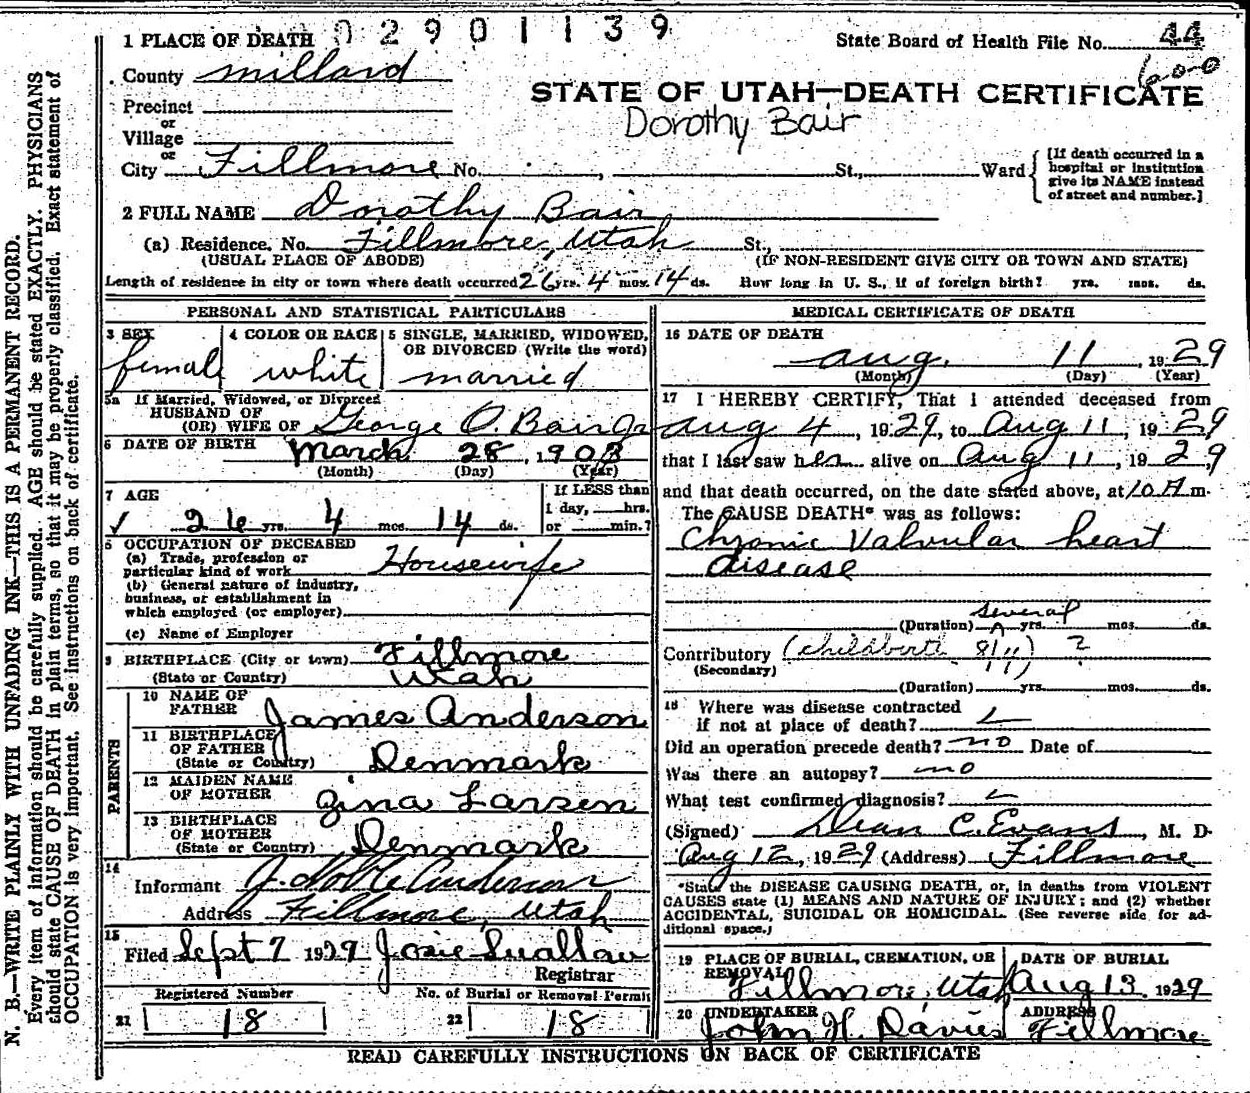 02901139
1 PLACE OF DEATH
State Board of Health File No. 44
600
County Millard
STATE OF UTAH—DEATH CERTIFICATE
Dorothy Bair
Precinct
or
Village
or
City Fillmore No. St., Ward
[If death occurred in a
hospital or institution
give its NAME instead
of street and number.]
2 FULL NAME Dorothy Bair
(a) Residence. No. Fillmore, Utah St.,
(USUAL PLACE OF ABODE) (IF NON-RESIDENT GIVE CITY OR TOWN AND STATE)
Length of residence in city or town where death occurred 26 yrs. 4 mos. 14 ds. How long in U. S., if of foreign birth? yrs. mos. ds.
PERSONAL AND STATISTICAL PARTICULARS
3 SEX
female
4 COLOR OR RACE
white
5 SINGLE, MARRIED, WIDOWED,
OR DIVORCED (Write the word)
married
5a If Married, Widowed, or Divorced
HUSBAND OF
(OR) WIFE OF George O. Bair Jr
6 DATE OF BIRTH March 28, 1903
(Month) (Day) (Year)
7 AGE
26 yrs. 4 mos. 14 ds.
If LESS than
1 day, hrs.
or min.?
OCCUPATION OF DECEASED
(a) Trade, profession or
particular kind of work Housewife
(b) General nature of industry,
business, or establishment in
which employed (or employer)
(c) Name of Employer
9 BIRTHPLACE (City or town) Fillmore
(State or Country) Utah
PARENTS
10 NAME OF
FATHER James Anderson
11 BIRTHPLACE
OF FATHER
(State or Country) Denmark
12 MAIDEN NAME
OF MOTHER Zina Larsen
13 BIRTHPLACE
OF MOTHER
(State or Country) Denmark
14
Informant J. Noble Anderson
Address Fillmore, Utah
15
Filed Sept 7 1929 Josie Swallow
Registrar
Registered Number
21 18
No. of Burial or Removal Permit
22 18
MEDICAL CERTIFICATE OF DEATH
16 DATE OF DEATH
Aug. 11, 1929
(Month) (Day) (Year)
17 I HEREBY CERTIFY, That I attended deceased from
Aug 4, 1929, to Aug 11, 1929
that I last saw her alive on Aug 11, 1929
and that death occurred, on the date stated above, at 10 A m.
The CAUSE DEATH* was as follows:
Chronic Valvular heart
disease
several
(Duration) yrs. mos. ds.
Contributory (Childbirth 8/11) ?
(Secondary)
(Duration) yrs. mos. ds.
18 Where was disease contracted
if not at place of death?
Did an operation precede death? no Date of
Was there an autopsy? no
What test confirmed diagnosis?
(Signed) Dean C. Evans, M. D.
Aug 12, 1929 (Address) Fillmore
*State the DISEASE CAUSING DEATH, or, in deaths from VIOLENT
CAUSES state (1) MEANS AND NATURE OF INJURY; and (2) whether
ACCIDENTAL, SUICIDAL OR HOMICIDAL. (See reverse side for ad-
ditional space.)
19 PLACE OF BURIAL, CREMATION, OR
REMOVAL
Fillmore, Utah
DATE OF BURIAL
Aug 13, 1929
20 UNDERTAKER
John H. Davies
ADDRESS
Fillmore
READ CAREFULLY INSTRUCTIONS ON BACK OF CERTIFICATE
N. B.—WRITE PLAINLY WITH UNFADING INK—THIS IS A PERMANENT RECORD.
Every item of information should be carefully supplied. AGE should be stated EXACTLY. PHYSICIANS
should state CAUSE OF DEATH in plain terms, so that it may be properly classified. Exact statement of
OCCUPATION is very important. See instructions on back of certificate.